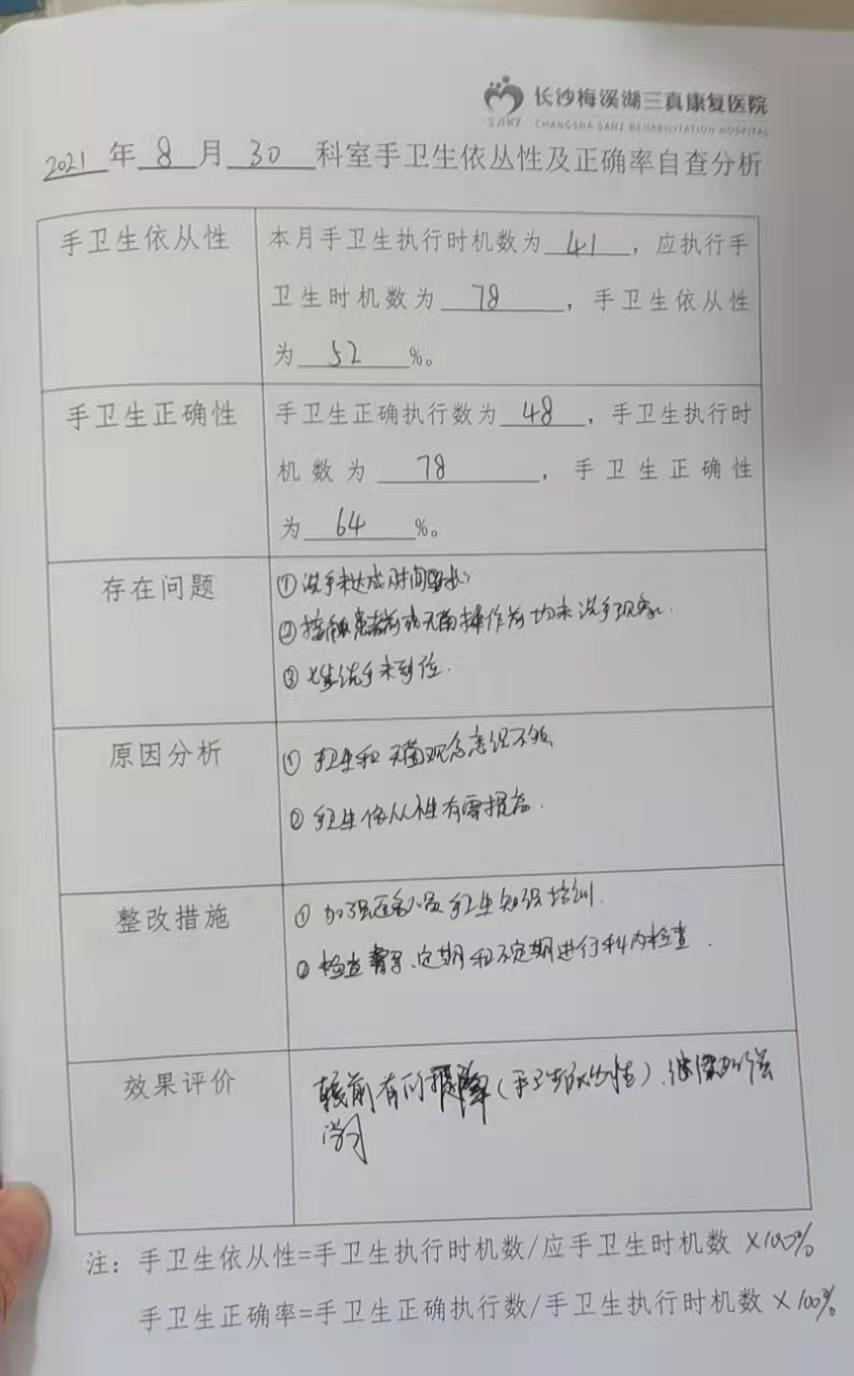 长沙梅溪湖三真康复医院
SANZ CHANGSHA SANZ REHABILITATION HOSPITAL
2021年8月30科室手卫生依丛性及正确率自查分析
手卫生依从性
本月手卫生执行时机数为41，应执行手
卫生时机数为78，手卫生依从性
为52%。
手卫生正确性
手卫生正确执行数为48，手卫生执行时
机数为78，手卫生正确性
为64%。
存在问题
①洗手未达应时间
②接触患者前或无菌操作前均未洗手现象.
③七步洗手未到位.
原因分析
① 手卫生和无菌观念意识不够
② 手卫生依从性有需提高.
整改措施
① 加强医务人员手卫生知识培训.
② 检查督导、定期和不定期进行科内检查.
效果评价
较前有所(手卫生依从性)、继续加强
学习
注：手卫生依从性=手卫生执行时机数/应手卫生时机数 ×100%
手卫生正确率=手卫生正确执行数/手卫生执行时机数 ×100%